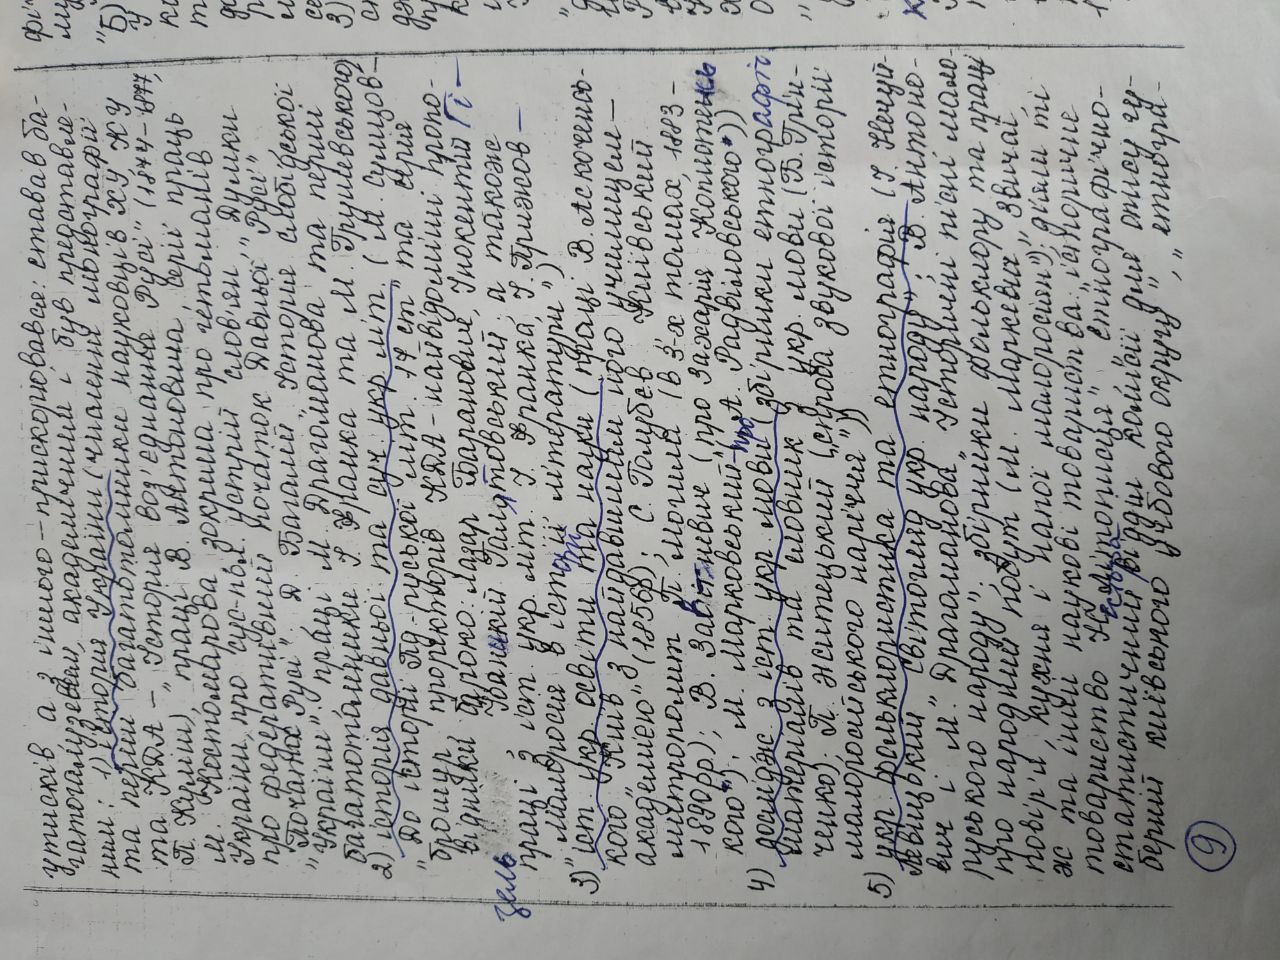 утисків, а з іншого – прискорювався: ставав ба-
гатогалузевим, академічним і був представле-
ним: 1) історія України (численні монографії
та перші багатотомники науковців ХУ, КУ
та КДА – „Історія воз'єднання Русі" (1874-1877,
П. Куліш), праці В. Антоновича, серії праць
М. Костомарова, зокрема про гетьманів
України, про сус-пол. устрій слов'ян, „Думки
про федеративний початок Давньої Русі",
„Початок Русі"; Д. Багалій „Історія слобідської
України"; праці М. Драгоманова та перші
багатотомники І. Франка та М. Грушевського)
2) історія давньої та суч. укр. літ. (М. Сумцов –
„До історії Пд.-руської літ. 17 ст" та серія
брошур, проректорів КДА – найвідоміші пропо-
відники бароко: Лазар Баранович, Інокентій Гі-
зель, Іоаникій Галятовський; а також
праці з іст. укр. літ. І. Франка, І. Прижов –
„Малоросія в історії літератури")
3) іст. укр. освіти та науки (праці В. Аскоченсь-
кого „Київ з найдавнішим його училищем –
академією" (1856р); С. Голубєв „Київський
митрополит П. Могила (в 3-х томах, 1883-
1890рр.); В. Завітневич (про Захарія Копистенсь
кого"); М. Марковський – про А. Радвіловського"))
4) дослідж. з іст. укр. мови (збірники етнографіч
матеріалів та словник з укр. мови (Б. Грін-
ченко); П. Житецький („спроба звукової історії
малоросійського наріччя"))
5) укр. фольклористика та етнографія (І. Нечуй-
Левицький „Світогляд укр. народу"; В. Антоно-
вич і М. Драгоманова „Історичні пісні мало-
руського народу"; збірники фольклору та праці
про народний побут (М. Маркевич „Звичаї,
повір'я, кухня і напої малоросіян"); діяли ті
ж та інші наукові товариства: „історичне
товариство Нестора літописця", „етнографічно-
статистичний відділ комісії для опису гу-
берній київського учбового округу", „етногра-
9